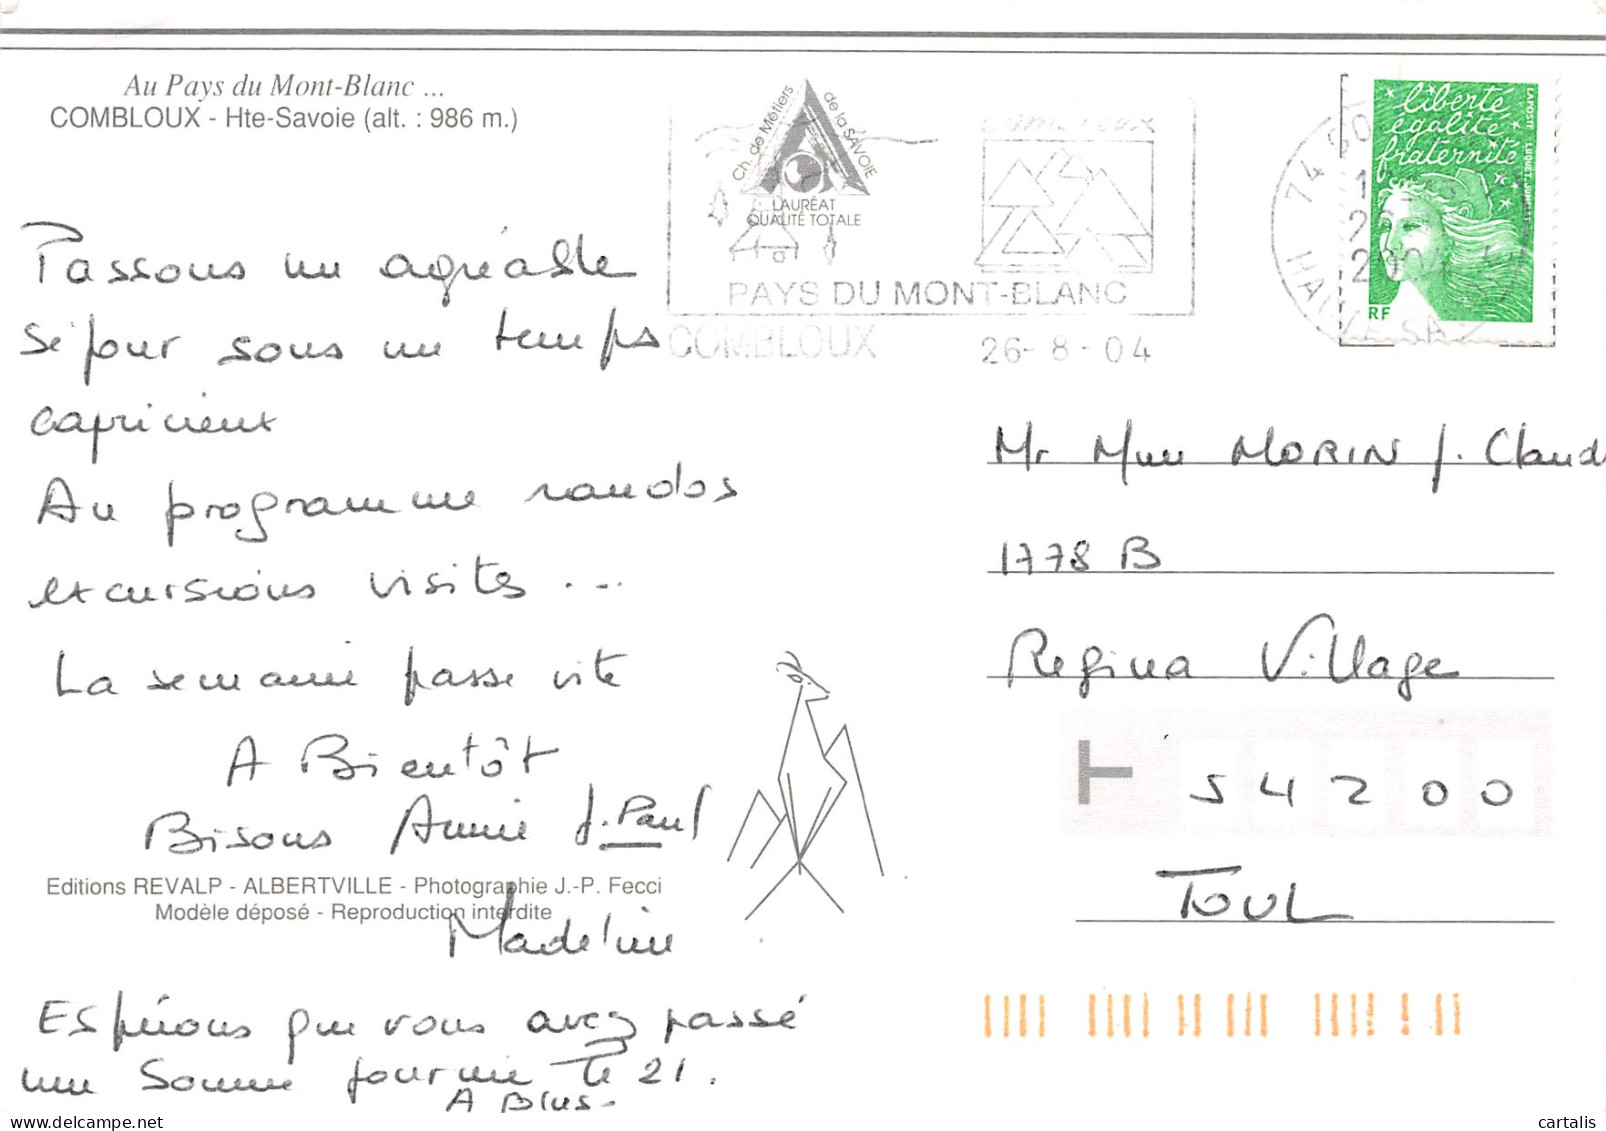 Au Pays du Mont-Blanc ...
COMBLOUX - Hte-Savoie (alt. : 986 m.)
Ch. de Métiers de la SAVOIE
LAURÉAT
QUALITÉ TOTALE
PAYS DU MONT-BLANC
COMBLOUX 26-8-04
74
HAUTE SA
liberté
égalité
fraternité
LA POSTE
RF
Passons un agréable
séjour sous un temps
capricieux
Au programme randos
excursions visites ...
La semaine passe vite
A Bientôt
Bisous Annie J.Paul
Editions REVALP - ALBERTVILLE - Photographie J.-P. Fecci
Modèle déposé - Reproduction interdite
Madeline
ESpérons que vous avez passé
une bonne journée le 21.
A Bius.
Mr Mme MORIN J. Claud
1778 B
Regina Village
54200
TOUL
cartalis